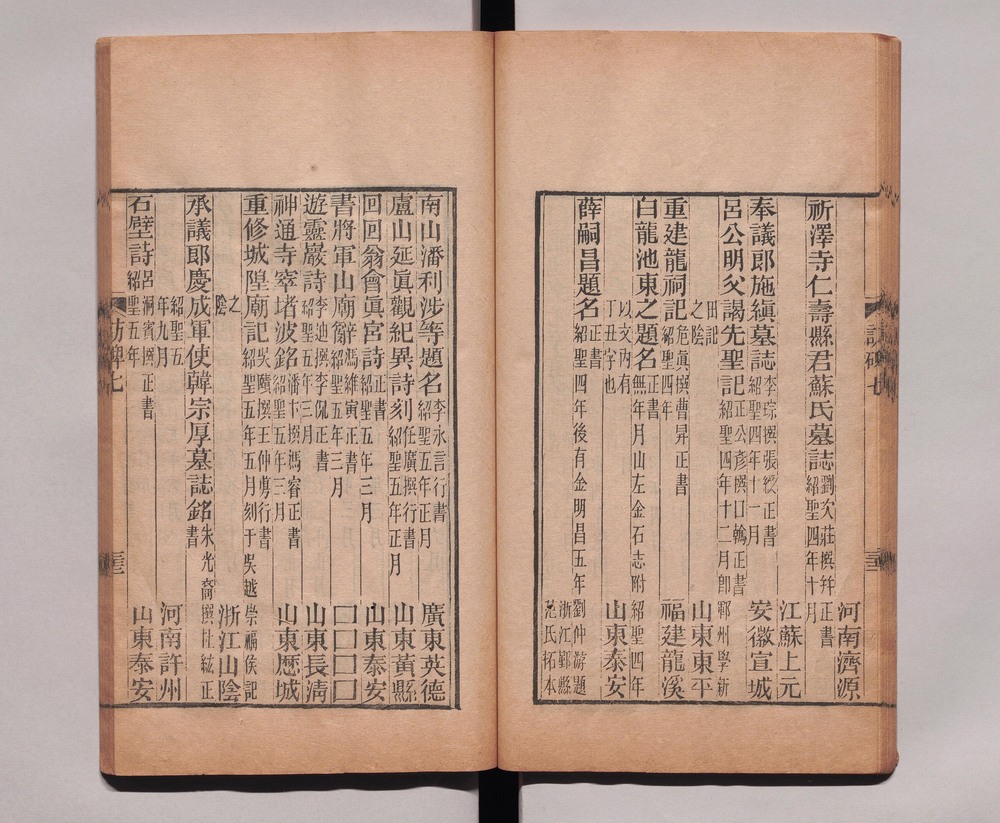 河南濟源
祈澤寺仁壽縣君蘇氏墓誌 劉次莊撰幷正書 紹聖四年十月
江蘇上元
奉議郎施縝墓誌 李琮撰張綬正書 紹聖四年十一月 安徽宣城
呂公明父謁先聖記 正公彥撰口鶴正書 紹聖四年十二月卽鄆州學新
田記之陰 山東東平
重建龍祠記 危眞撰曹昇正書 紹聖四年 福建龍溪
白龍池東之題名 正書無年月山左金石志附紹聖四年
以文內有丁丑字也 山東泰安
薛嗣昌題名 正書 紹聖四年後有金明昌五年劉仲游題 浙江鄞縣范氏拓本
南山潘利涉等題名 李永言行書 紹聖五年正月 廣東英德
盧山延眞觀紀異詩刻 任廣撰行書 紹聖五年正月 山東黃縣
回回翁會眞宮詩 正書 紹聖五年三月 山東泰安
書將軍山廟辭 馮維寅正書 紹聖五年三月 口口口口
遊靈巖詩 李迪撰李侃正書 紹聖五年三月 山東長清
神通寺窣堵波銘 潘卞撰馮睿正書 紹聖五年三月 山東歷城
重修城隍廟記 吳蹟撰王仲甫行書 紹聖五年五月刻于吳越崇福侯記
之陰 浙江山陰
承議郎慶成軍使韓宗厚墓誌銘 朱光裔撰杜紘正書
紹聖五年九月 河南許州
石壁詩 呂洞賓撰正書 紹聖五年 山東泰安
訪碑七